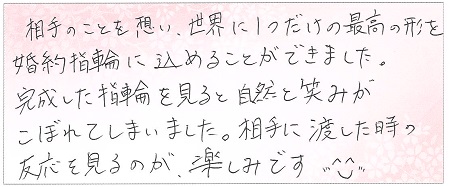 相手のことを想い、世界に1つだけの最高の形を
婚約指輪に込めることができました。
完成した指輪を見ると自然と笑みが
こぼれてしまいました。相手に渡した時の
反応を見るのが、楽しみです ^^